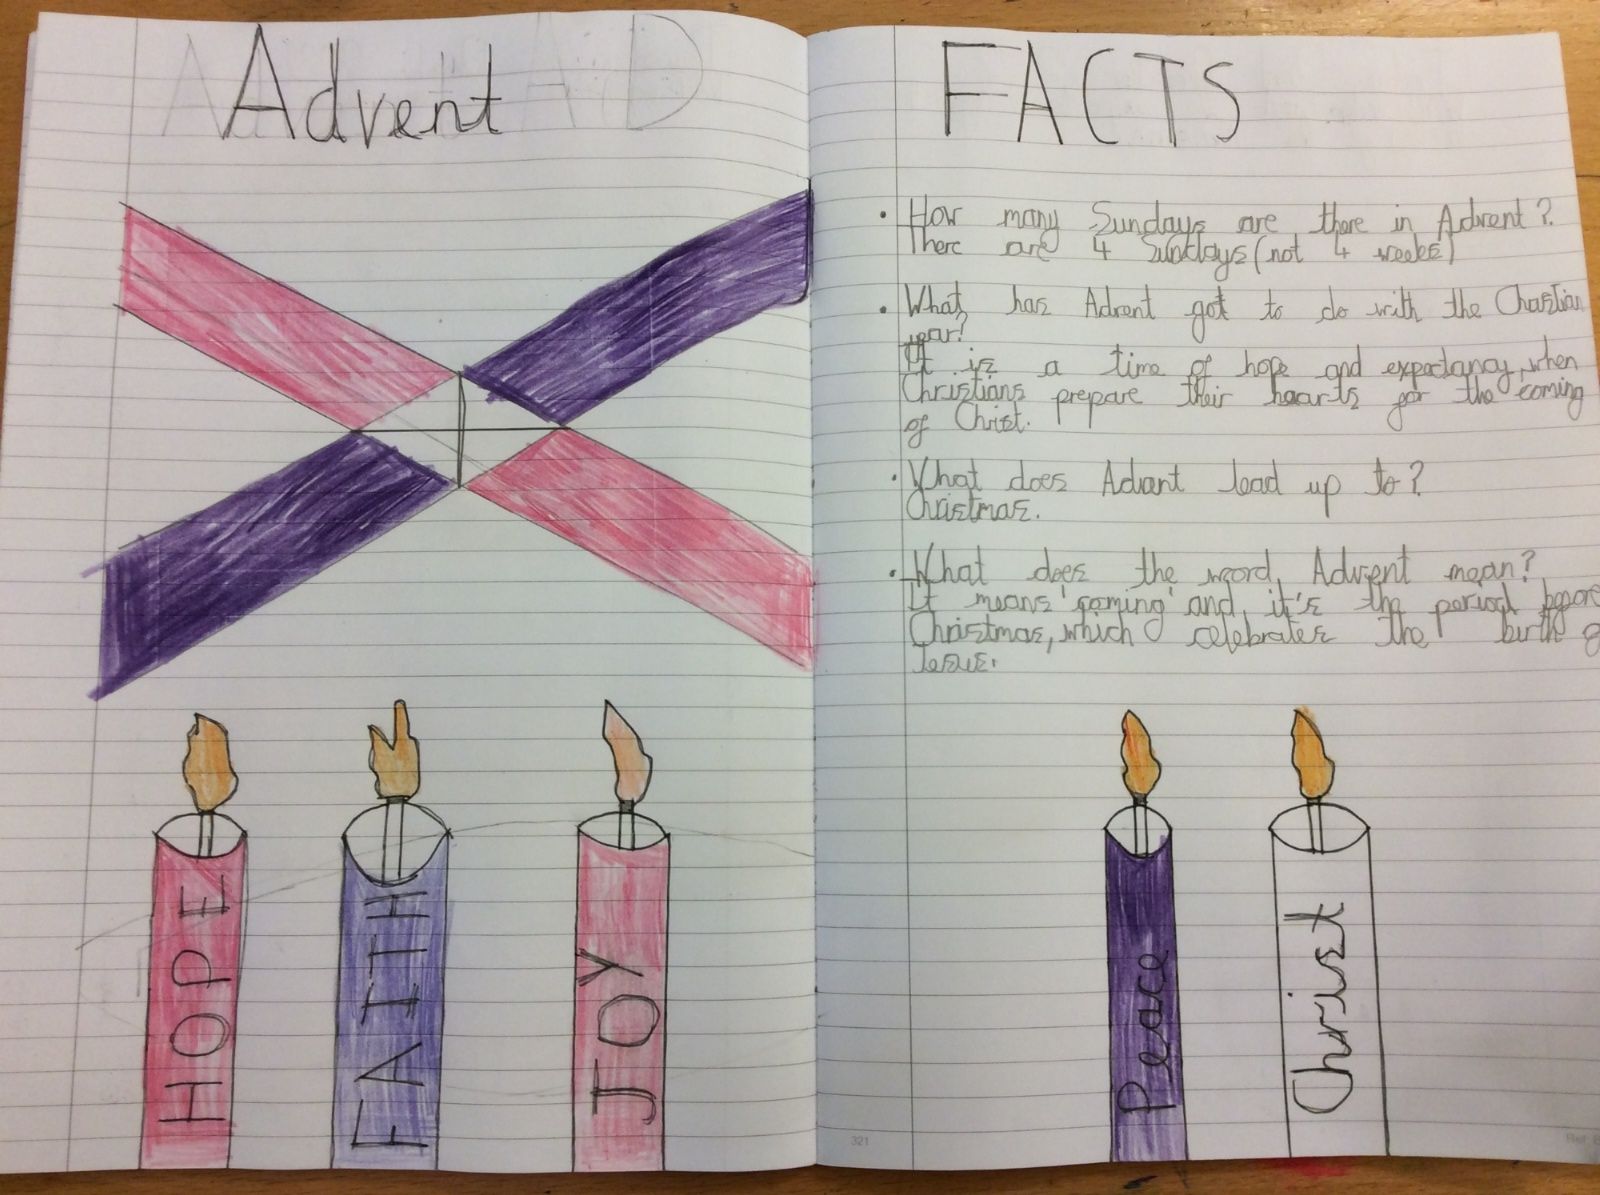 Advent
FACTS
• How many Sundays are there in Advent?
There are 4 Sundays (not 4 weeks)
• What has Advent got to do with the Christian
year?
It is a time of hope and expectancy, when
Christians prepare their hearts for the coming
of Christ.
• What does Advant lead up to?
Christmas.
• What does the word, Advent mean?
It means 'coming' and, it's the period before
Christmas, which celebrates the birth of
Jesus.
HOPE
FAITH
JOY
Peace
Christ
321